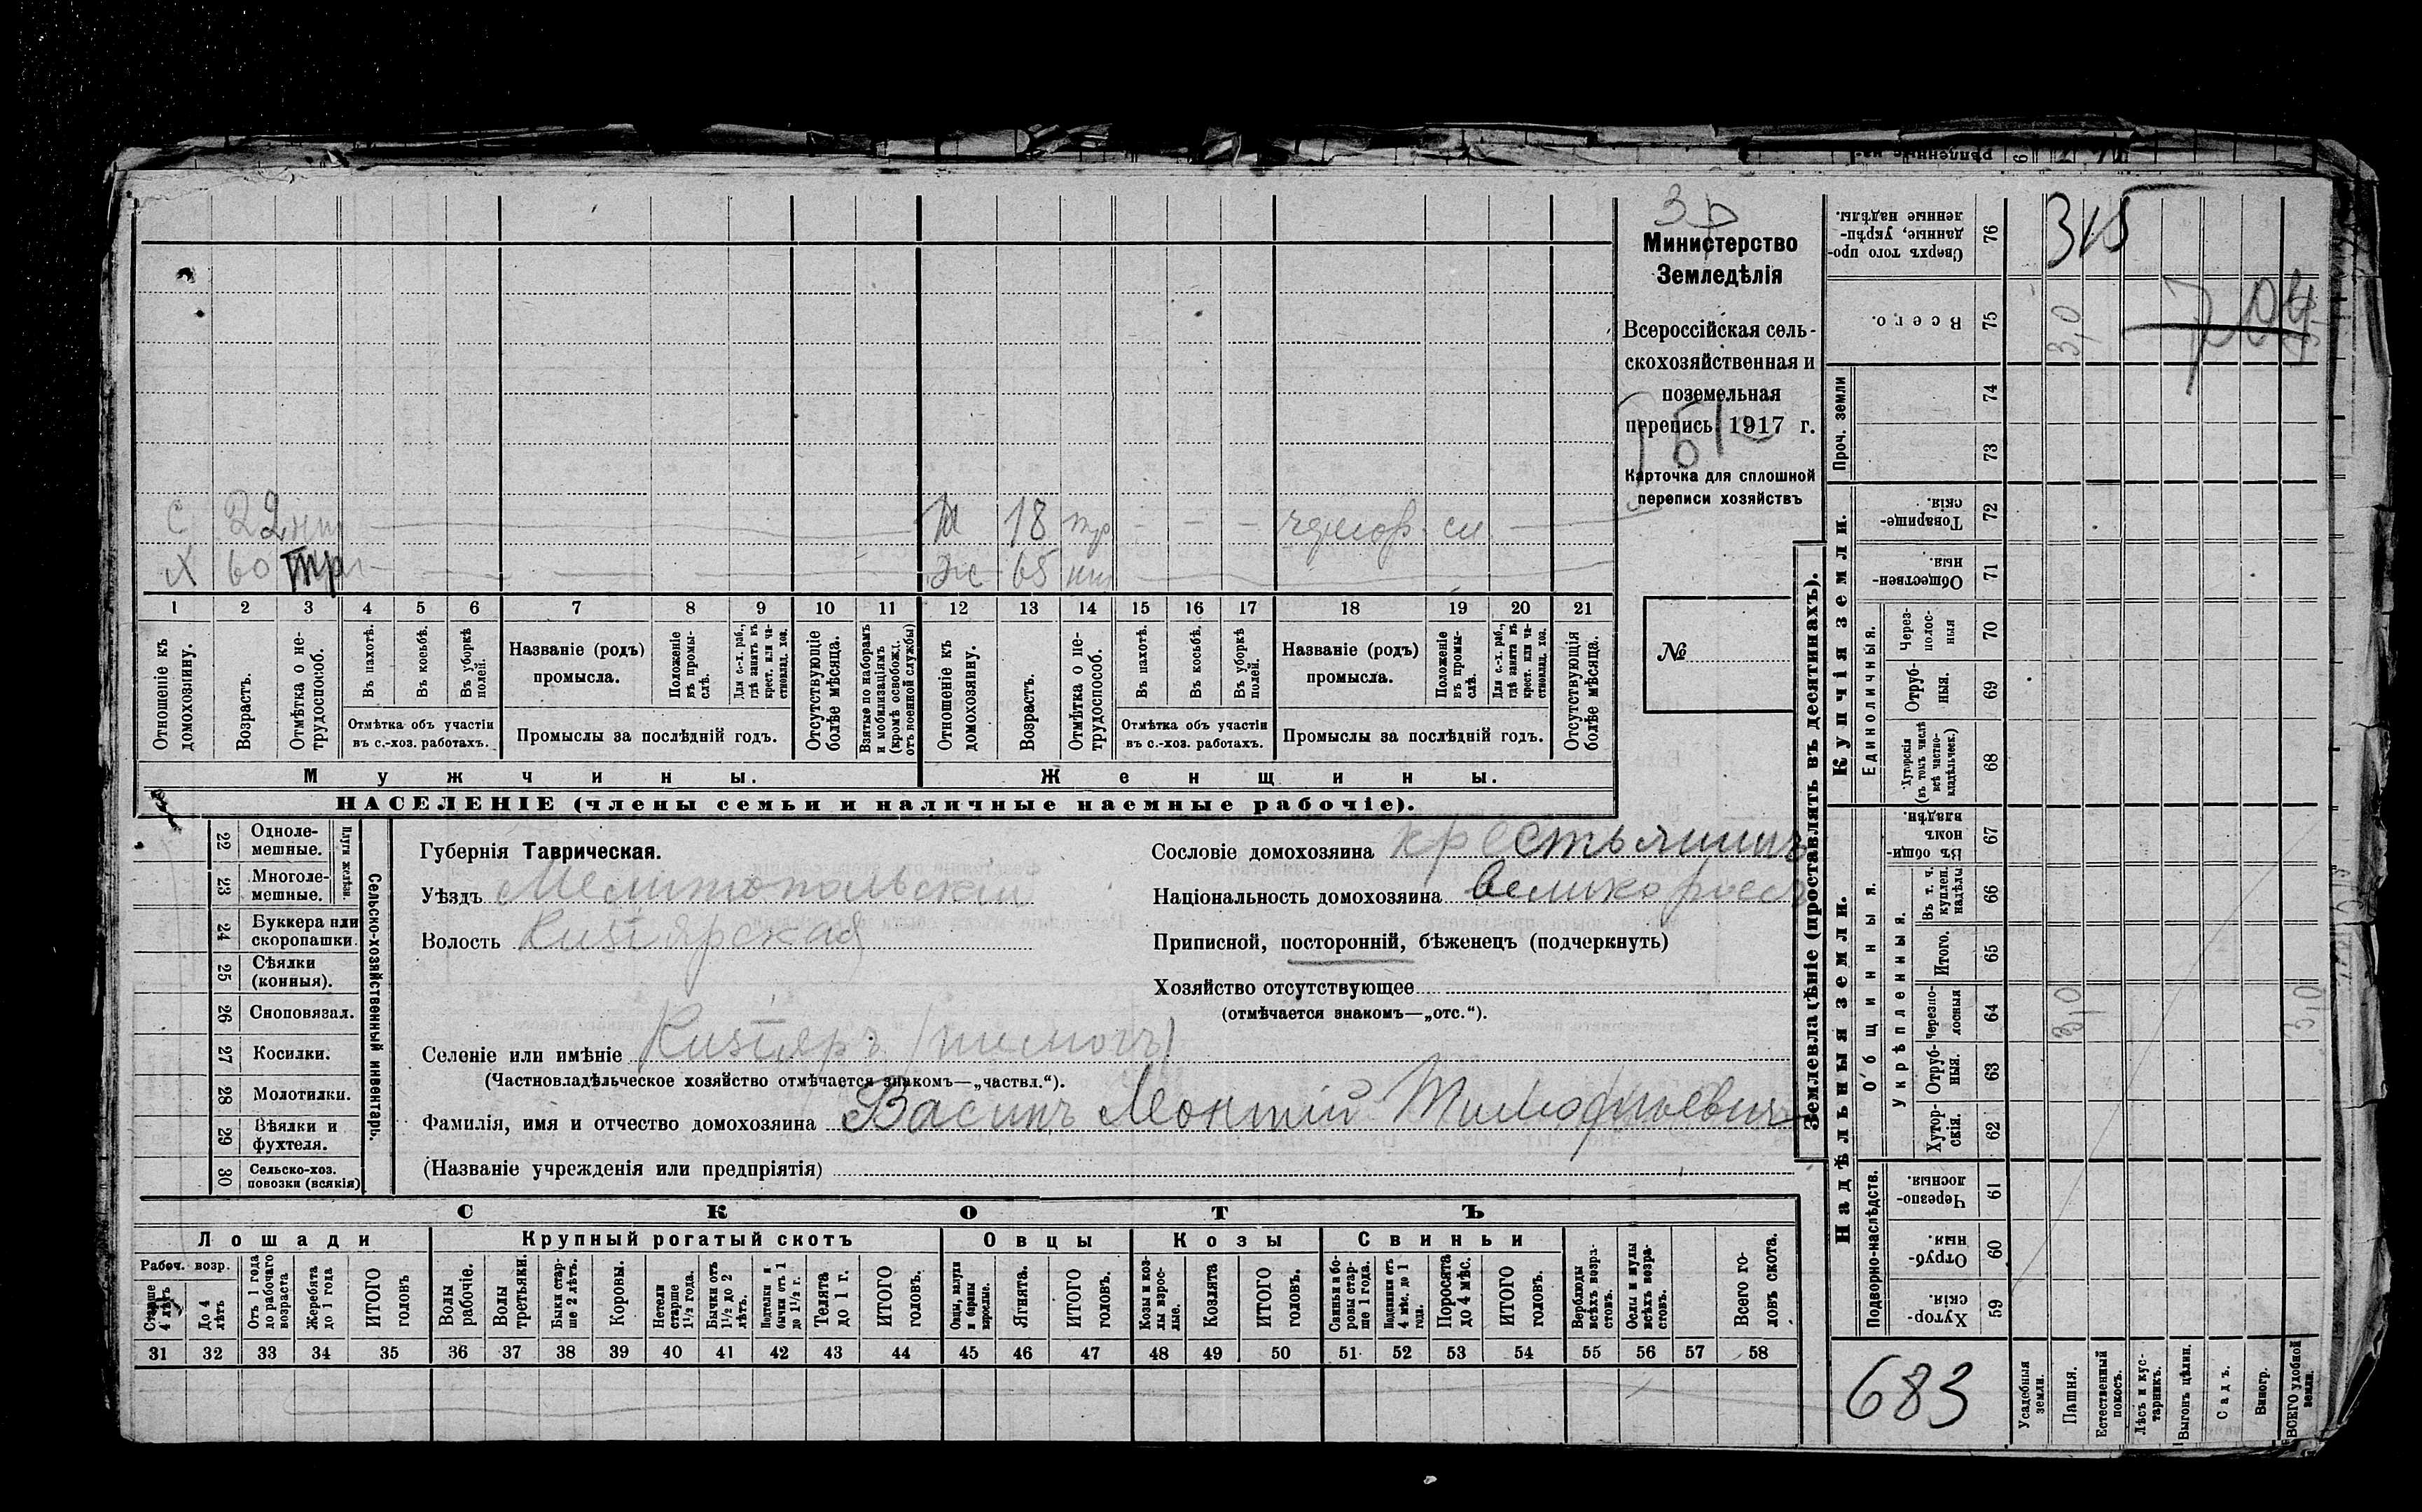 315
704
Министерство
Земледѣлія
Всероссійская сель-
скохозяйственная и
поземельная
перепись 1917 г.
Карточка для сплошной
переписи хозяйствъ
№
С 22 нт
Х 60 тр
М 18 тр
Ж 65 нт
1 2 3 4 5 6 7 8 9 10 11 12 13 14 15 16 17 18 19 20 21
Отношеніе къ домохозяину.
Возрастъ.
Отмѣтка о не-трудоспособ.
Въ пахотѣ.
Въ косьбѣ.
Въ уборкѣ полей.
Отмѣтка объ участіи
въ с.-хоз. работахъ.
Названіе (родъ)
промысла.
Положеніе въ промы-слѣ.
Для с.-х. раб., гдѣ занятъ въ крест. или ча-стновлад. хоз.
Промыслы за послѣдній годъ.
Отсутствующіе болѣе мѣсяца.
Взятые по наборамъ и мобилизаціямъ (кромѣ освобожд. отъ военной службы)
Отношеніе къ домохозяину.
Возрастъ.
Отмѣтка о не-трудоспособ.
Въ пахотѣ.
Въ косьбѣ.
Въ уборкѣ полей.
Отмѣтка объ участіи
въ с.-хоз. работахъ.
Названіе (родъ)
промысла.
Положеніе въ промы-слѣ.
Для с.-х. раб., гдѣ занята въ крест. или ча-стновлад. хоз.
Промыслы за послѣдній годъ.
Отсутствующія болѣе мѣсяца.
Мужчины.
Женщины.
НАСЕЛЕНІЕ (члены семьи и наличные наемные рабочіе).
22 Одноле-мешные.
23 Многоле-мешные.
Плуги желѣзн.
24 Буккера или скоропашки.
25 Сѣялки (конныя).
26 Сноповязал.
27 Косилки.
28 Молотилки.
29 Вѣялки и фухтеля.
30 Сельско-хоз. повозки (всякія)
Сельско-хозяйственный инвентарь.
Губернія Таврическая.
Уѣздъ Мелитопольскій
Волость Кизіярская
Селеніе или имѣніе Кизіяръ
(Частновладѣльческое хозяйство отмѣчается знакомъ—„частвл.“).
Фамилія, имя и отчество домохозяина Васинъ Леонтій Тимофѣевичъ
(Названіе учрежденія или предпріятія)
Сословіе домохозяина крестьянинъ
Національность домохозяина великороссъ
Приписной, посторонній, бѣженецъ (подчеркнуть)
Хозяйство отсутствующее
(отмѣчается знакомъ—„отс.“).
СКОТЪ
Лошади
Крупный рогатый скотъ
Овцы
Козы
Свиньи
Рабоч. возр.
Старше 4 лѣтъ
До 4 лѣтъ
Отъ 1 года до рабочаго возраста
Жеребята до 1 года
ИТОГО головъ
Волы рабочіе.
Волы третьяки.
Быки стар-ше 2 лѣтъ.
Коровы.
Нетели старше 1½ года.
Бычки отъ 1½ до 2 лѣтъ.
Подтелки и бычки отъ 1 до 1½ г.
Телята до 1 г.
ИТОГО головъ.
Овцы, валухи и бараны взрослые.
Ягнята.
ИТОГО головъ.
Козы и коз-лы взрос-лые.
Козлята
ИТОГО головъ.
Свиньи и бо-ровы стар-ше 1 года.
Подсвинки отъ 4 мѣс. до 1 года.
Поросята до 4 мѣс.
ИТОГО головъ.
Верблюды всѣхъ возра-стовъ.
Ослы и мулы всѣхъ возра-стовъ.
Всего го-ловъ скота.
31 32 33 34 35 36 37 38 39 40 41 42 43 44 45 46 47 48 49 50 51 52 53 54 55 56 57 58
Землевладѣніе (проставлять въ десятинахъ).
Сверхъ того про-данные, укрѣп-ленные надѣлы. 76
Всего. 75 3,0
Проч. земли 74
73
Купчія земли.
Товарище-скія. 72
Обществен-ныя. 71
Единоличныя.
Через-полос-ныя 70
Отруб-ныя. 69
Хуторскія (въ томъ числѣ всѣ частно-владѣльческ.) 68
Надѣльныя земли.
Общинныя.
Въ общин-номъ владѣн. 67
Укрѣпленныя.
Въ т. ч. куплен. надѣлы 66
Итого. 65
Черезпо-лосныя 64 3,0 3,0
Отруб-ныя. 63
Хутор-скія. 62
Подворно-наслѣдств.
Черезпо-лосныя. 61
Отруб-ныя. 60
Хутор-скія. 59
683
Усадебныя земли.
Пашня.
Естественный покосъ.
Лѣсъ и кус-тарникъ.
Выгонъ цѣлин.
Садъ.
Виногр.
ВСЕГО удобной земли.